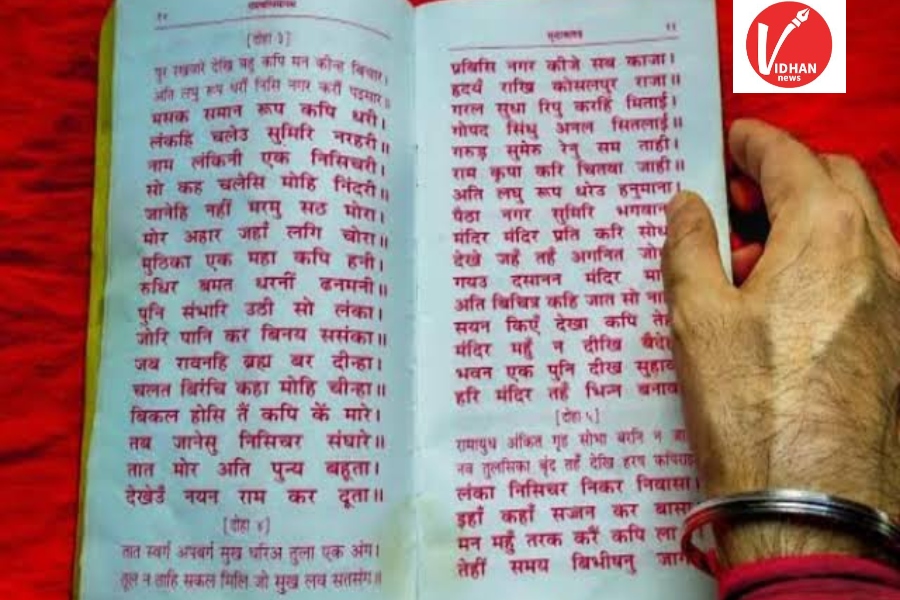 १०
[दोहा ३]
पुर रखवारे देखि बहु कपि मन कीन्ह बिचार।
अति लघु रूप धरौं निसि नगर करौं पइसार॥
मसक समान रूप कपि धरी।
लंकहि चलेउ सुमिरि नरहरी॥
नाम लंकिनी एक निसिचरी।
सो कह चलेसि मोहि निंदरी॥
जानेहि नहीं मरमु सठ मोरा।
मोर अहार जहाँ लगि चोरा॥
मुठिका एक महा कपि हनी।
रुधिर बमत धरनीं ढनमनी॥
पुनि संभारि उठी सो लंका।
जोरि पानि कर बिनय ससंका॥
जब रावनहि ब्रह्म बर दीन्हा।
चलत बिरंचि कहा मोहि चीन्हा॥
बिकल होसि तैं कपि कें मारे।
तब जानेसु निसिचर संघारे॥
तात मोर अति पुन्य बहूता।
देखेउँ नयन राम कर दूता॥
[दोहा ४]
तात स्वर्ग अपबर्ग सुख धरिअ तुला एक अंग।
तूल न ताहि सकल मिलि जो सुख लव सतसंग॥
११
प्रबिसि नगर कीजे सब काजा।
हृदयँ राखि कोसलपुर राजा॥
गरल सुधा रिपु करहिं मिताई।
गोपद सिंधु अनल सितलाई॥
गरुड़ सुमेरु रेनु सम ताही।
राम कृपा करि चितवा जाही॥
अति लघु रूप धरेउ हनुमाना।
पैठा नगर सुमिरि भगवान
मंदिर मंदिर प्रति करि सोध
देखे जहँ तहँ अगनित जो
गयउ दसानन मंदिर मा
अति बिचित्र कहि जात सो ना
सयन किएँ देखा कपि ते
मंदिर महुँ न दीखि बैदे
भवन एक पुनि दीख सुहाव
हरि मंदिर तहँ भिन्न बनाव
[दोहा ५]
रामायुध अंकित गृह सोभा बरनि न जा
नव तुलसिका बृंद तहँ देखि हरष कपिराइ
लंका निसिचर निकर निवासा।
इहाँ कहाँ सज्जन कर बासा
मन महुँ तरक करैं कपि ला
तेहीं समय बिभीषनु जाग
VIDHAN
news